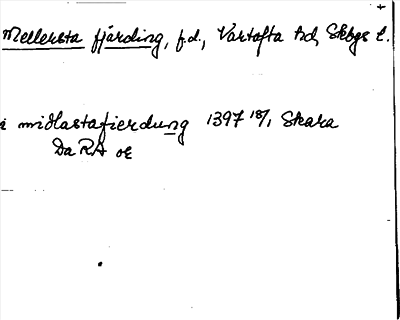 Mellersta fjärding, f.d., Vartofta hd, Skbgs l.
i midlastafierdung 1397 18/1 Skara
DaRA or